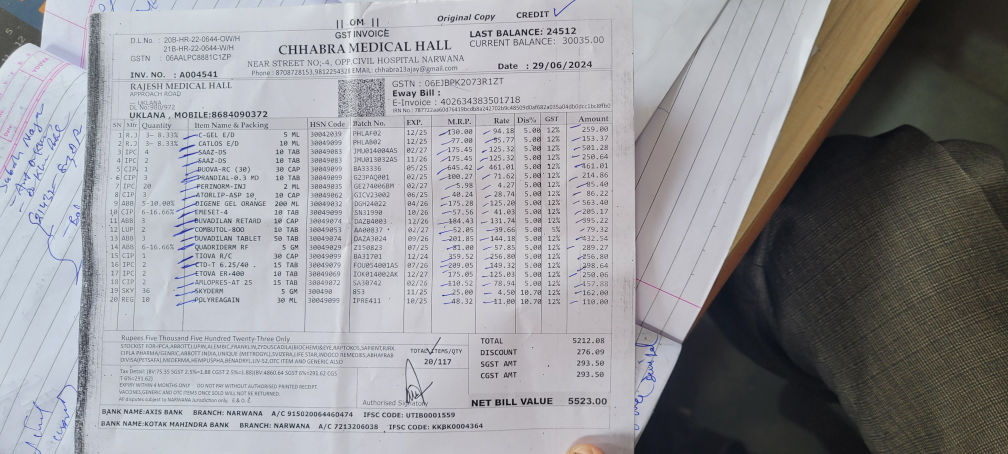 || OM ||
Original Copy CREDIT
GST INVOICE
D.L.No. : 20B-HR-22-0644-OW/H
21B-HR-22-0644-W/H
GSTN : 06AALPC8881C1ZP
CHHABRA MEDICAL HALL
LAST BALANCE: 24512
CURRENT BALANCE: 30035.00
NEAR STREET NO;-4, OPP.CIVIL HOSPITAL NARWANA
Phone : 8708728153, EMAIL: chhabra13ajay@gmail.com
INV. NO. : A004541
Date : 29/06/2024
RAJESH MEDICAL HALL
APPROACH ROAD
UKLANA
UKLANA , MOBILE:8684090372
GSTN : 06EJBPK2073R1ZT
Eway Bill :
E-Invoice : 402634383501718
SN Mfr Quantity Item Name & Packing HSN Code Batch No. EXP. M.R.P. Rate Dis% GST Amount
1 R.J 3- 8.33% C-GEL E/D 5 ML 30042039 PHLAF02 12/25 130.00 94.18 5.00 12% 259.00
2 R.J 3- 8.33% CATLOS E/D 10 ML 30049099 PHLAB02 12/25 77.00 55.77 5.00 12% 153.37
3 IPC 4 SAAZ-DS 10 TAB JMU014004AS 02/27 175.45 125.32 5.00 12% 501.28
4 IPC 2 SAAZ-DS 10 TAB JMU013032AS 11/26 175.45 125.32 5.00 12% 250.64
5 CIP 1 DUOVA-RC (30) 30 CAP 30049099 BA33336 05/25 645.42 461.01 5.00 12% 461.01
6 CIP 3 PRANDIAL-0.3 MD 10 TAB 30049099 G23PAQ001 10/25 100.27 71.62 5.00 12% 214.86
7 IPC 20 PERINORM-INJ 2 ML 30049035 GE274006BM 02/27 5.98 4.27 5.00 12% 85.40
8 CIP 3 ATORLIP-ASP 10 10 CAP GICV23002 06/25 40.24 28.74 5.00 12% 86.22
9 ABB 5-10.00% DIGENE GEL ORANGE 200 ML 30049032 DGH24022 04/26 175.28 125.20 5.00 12% 563.40
10 CIP 6-16.66% EMESET-4 10 TAB 30049034 SN31990 10/26 57.56 41.03 5.00 12% 205.17
11 ABB 3 DUVADILAN RETARD 10 CAP 30049074 DAZB4003 12/26 184.43 131.74 5.00 12% 395.22
12 LUP 2 COMBUTOL-800 10 TAB 30049053 AA00837 02/27 52.05 39.66 5.00 5% 79.32
13 ABB 3 DUVADILAN TABLET 50 TAB 30049074 DAZA3024 09/26 201.85 144.18 5.00 12% 432.54
14 ABB 6-16.66% QUADRIDERM RF 5 GM 30049029 Z150823 07/25 81.00 57.85 5.00 12% 289.27
15 CIP 1 TIOVA R/C 30 CAP 30049099 BA31701 12/24 359.52 256.80 5.00 12% 256.80
16 IPC 2 CTD-T 6.25/40 15 TAB 30049079 FOU054001AS 07/26 209.05 149.32 5.00 12% 298.64
17 IPC 2 ETOVA ER-400 10 TAB 30049069 IOK014002AK 12/27 175.05 125.03 5.00 12% 250.06
18 CIP 2 AMLOPRES-AT 25 15 TAB 30049072 SA30742 02/26 110.52 78.94 5.00 12% 157.88
19 SKY 36 SKYDERM 5 GM 300490 853 11/25 25.00 4.50 10.70 12% 162.00
20 REG 10 POLYREAGAIN 30 ML 30049099 IPRE411 10/25 48.32 11.00 10.70 12% 110.00
Rupees Five Thousand Five Hundred Twenty-Three Only
TOTAL ITEMS/QTY
20/117
TOTAL 5212.08
DISCOUNT 276.09
SGST AMT 293.50
CGST AMT 293.50
EXPIRY WITHIN 4 MONTHS ONLY DO NOT PAY WITHOUT AUTHORISED PRINTED RECEIPT.
VACCINES,GENERIC AND OTC ITEMS ONCE SOLD WILL NOT BE RETURNED.
All disputes subject to NARWANA Jurisdiction only. E.& O. E
Authorised Signatory
NET BILL VALUE 5523.00
BANK NAME:AXIS BANK BRANCH: NARWANA A/C 915020064460474 IFSC CODE: UTIB0001559
BANK NAME:KOTAK MAHINDRA BANK BRANCH: NARWANA A/C 7213206038 IFSC CODE: KKBK0004364